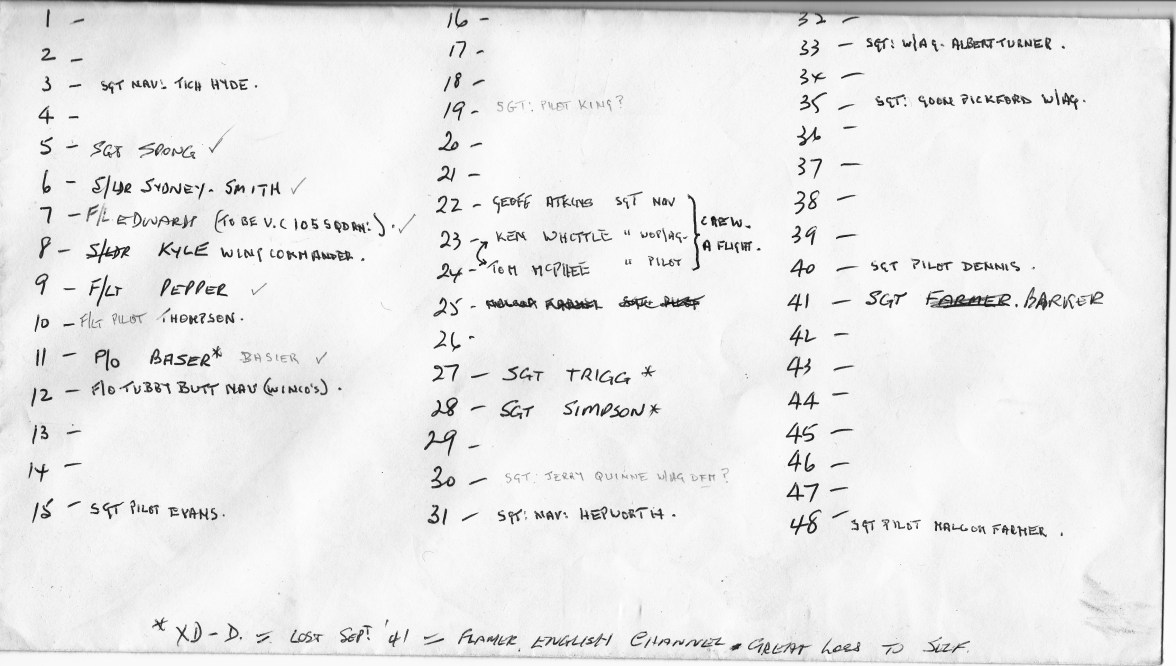 1 -
2 -
3 - SGT NAV: TICH HYDE.
4 -
5 - SGT SPONG ✓
6 - S/LDR SYDNEY-SMITH ✓
7 - F/L EDWARDS (TO BE V.C 105 SQDRN:). ✓
8 - S/LDR KYLE WING COMMANDER.
9 - F/LT PEPPER ✓
10 - F/LT PILOT THOMPSON.
11 - P/O BASER* BASIER ✓
12 - F/O TUBBY BUTT NAV (WINCO'S).
13 -
14 -
15 - SGT PILOT EVANS.
16 -
17 -
18 -
19 - SGT: PILOT KING?
20 -
21 -
22 - GEOFF ATKINS SGT NAV
23 - KEN WHITTLE " WOP/AG-
24 - TOM MCPHEE " PILOT
CREW.
A FLIGHT.
25 - MALCOM FARMER SGT: PILOT
26 -
27 - SGT TRIGG *
28 - SGT SIMPSON *
29 -
30 - SGT: JERRY QUINNE W/AG DFM?
31 - SGT: NAV: HEPWORTH.
32 -
33 - SGT: W/AG- ALBERT TURNER.
34 -
35 - SGT: GOON PICKFORD W/AG.
36 -
37 -
38 -
39 -
40 - SGT PILOT DENNIS.
41 - SGT FARMER. BARKER
42 -
43 -
44 -
45 -
46 -
47 -
48 - SGT PILOT MALCOM FARMER.
* XD-D. = LOST SEPT! '41 = FLAMER ENGLISH CHANNEL. GREAT LOSS TO SELF.